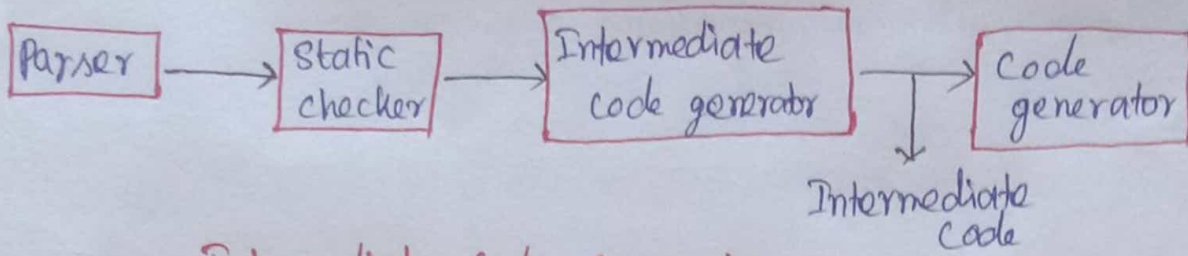 Parser
Static
checker
Intermediate
code generator
Code
generator
Intermediate
Code